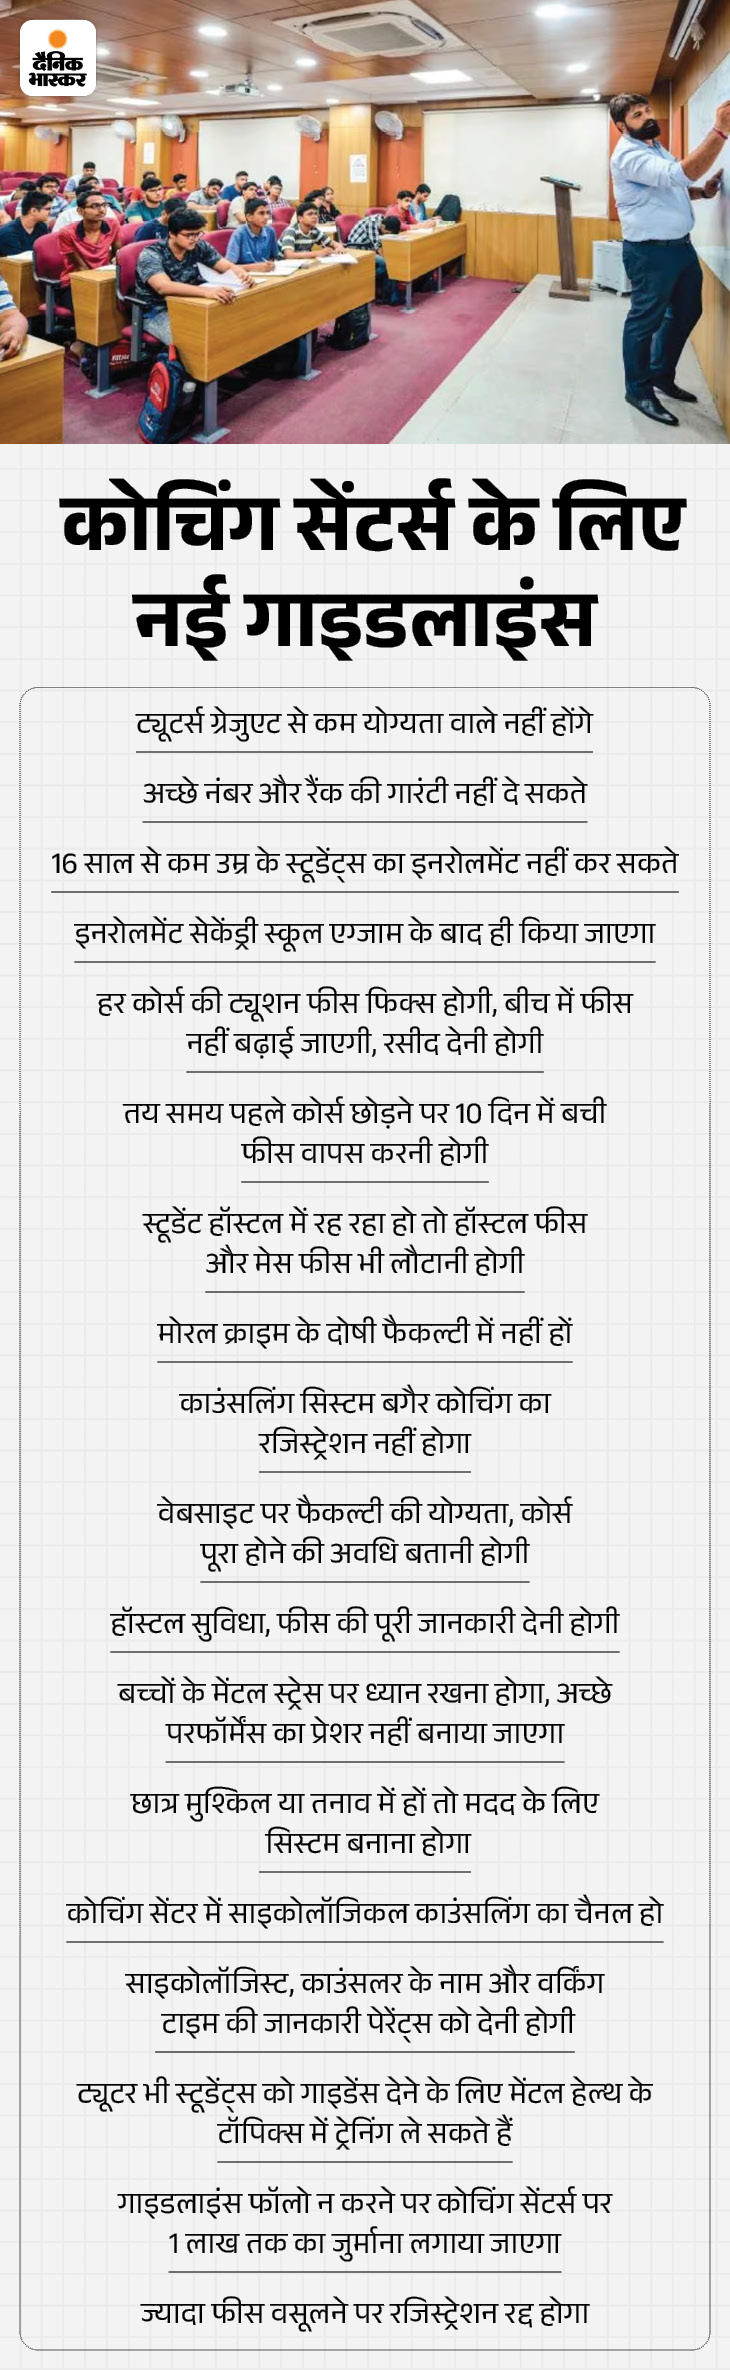 दैनिक
भास्कर
कोचिंग सेंटर्स के लिए
नई गाइडलाइंस
ट्यूटर्स ग्रेजुएट से कम योग्यता वाले नहीं होंगे
अच्छे नंबर और रैंक की गारंटी नहीं दे सकते
16 साल से कम उम्र के स्टूडेंट्स का इनरोलमेंट नहीं कर सकते
इनरोलमेंट सेकेंड्री स्कूल एग्जाम के बाद ही किया जाएगा
हर कोर्स की ट्यूशन फीस फिक्स होगी, बीच में फीस
नहीं बढ़ाई जाएगी, रसीद देनी होगी
तय समय पहले कोर्स छोड़ने पर 10 दिन में बची
फीस वापस करनी होगी
स्टूडेंट हॉस्टल में रह रहा हो तो हॉस्टल फीस
और मेस फीस भी लौटानी होगी
मोरल क्राइम के दोषी फैकल्टी में नहीं हों
काउंसलिंग सिस्टम बगैर कोचिंग का
रजिस्ट्रेशन नहीं होगा
वेबसाइट पर फैकल्टी की योग्यता, कोर्स
पूरा होने की अवधि बतानी होगी
हॉस्टल सुविधा, फीस की पूरी जानकारी देनी होगी
बच्चों के मेंटल स्ट्रेस पर ध्यान रखना होगा, अच्छे
परफॉर्मेंस का प्रेशर नहीं बनाया जाएगा
छात्र मुश्किल या तनाव में हों तो मदद के लिए
सिस्टम बनाना होगा
कोचिंग सेंटर में साइकोलॉजिकल काउंसलिंग का चैनल हो
साइकोलॉजिस्ट, काउंसलर के नाम और वर्किंग
टाइम की जानकारी पेरेंट्स को देनी होगी
ट्यूटर भी स्टूडेंट्स को गाइडेंस देने के लिए मेंटल हेल्थ के
टॉपिक्स में ट्रेनिंग ले सकते हैं
गाइडलाइंस फॉलो न करने पर कोचिंग सेंटर्स पर
1 लाख तक का जुर्माना लगाया जाएगा
ज्यादा फीस वसूलने पर रजिस्ट्रेशन रद्द होगा